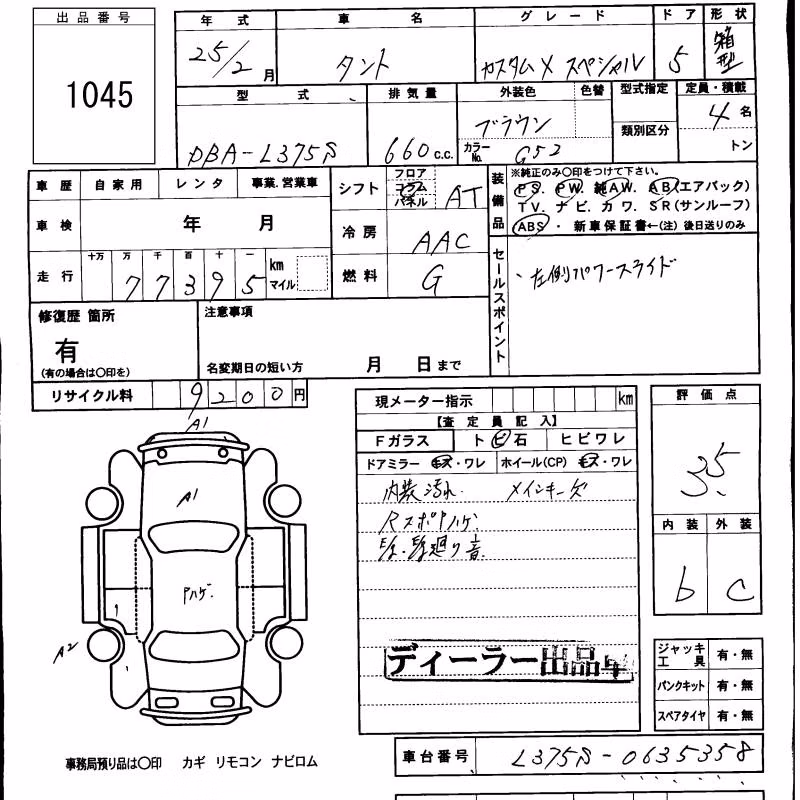 出品番号
1045
年式 車名 グレード ドア 形状
25/2月 タント カスタムX スペシャル 5 箱型
型式 排気量 外装色 色替 型式指定 定員・積載
DBA-L375S 660c.c. ブラウン 類別区分 4名
カラーNo. G52 トン
車歴 自家用 レンタ 事業.営業車
車検 年 月
走行 十万 万 千 百 十 一
77395 km マイル
シフト フロア コラム パネル AT
冷房 AAC
燃料 G
装備品
※純正のみ〇印をつけて下さい。
PS. PW. 純AW. AB(エアバック)
TV. ナビ. カワ. SR(サンルーフ)
ABS ・ 新車保証書←(注) 後日送りのみ
セールスポイント
、左側パワースライド
修復歴 箇所
有
(有の場合は〇印を)
注意事項
名変期日の短い方 月 日まで
リサイクル料 9200円
現メーター指示 km
【査定員記入】
Fガラス トビ石 ヒビワレ
ドアミラー キズ・ワレ ホイール(CP) キズ・ワレ
内装汚れ. メインキーズ
Rスポハゲ.
音
ディーラー出品車
評価点
3.5
内装 外装
b C
A1
A1
ハゲ.
A2
ジャッキ 工具 有・無
パンクキット 有・無
スペアタイヤ 有・無
事務局預り品は〇印 カギ リモコン ナビロム
車台番号 L375S-0635358